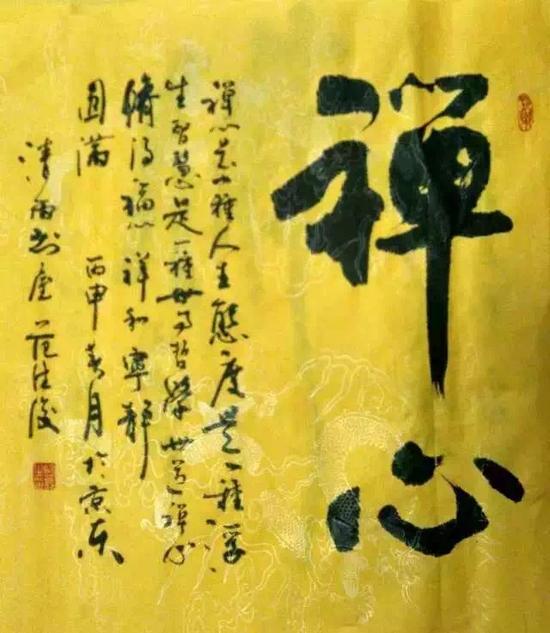 禪心
禅心是一种人生态度是一种浮
生智慧是一种世司哲学世道禅心
修得福心祥和宁静
圆满 丙申春月於京东
清雨书屋 范生俊